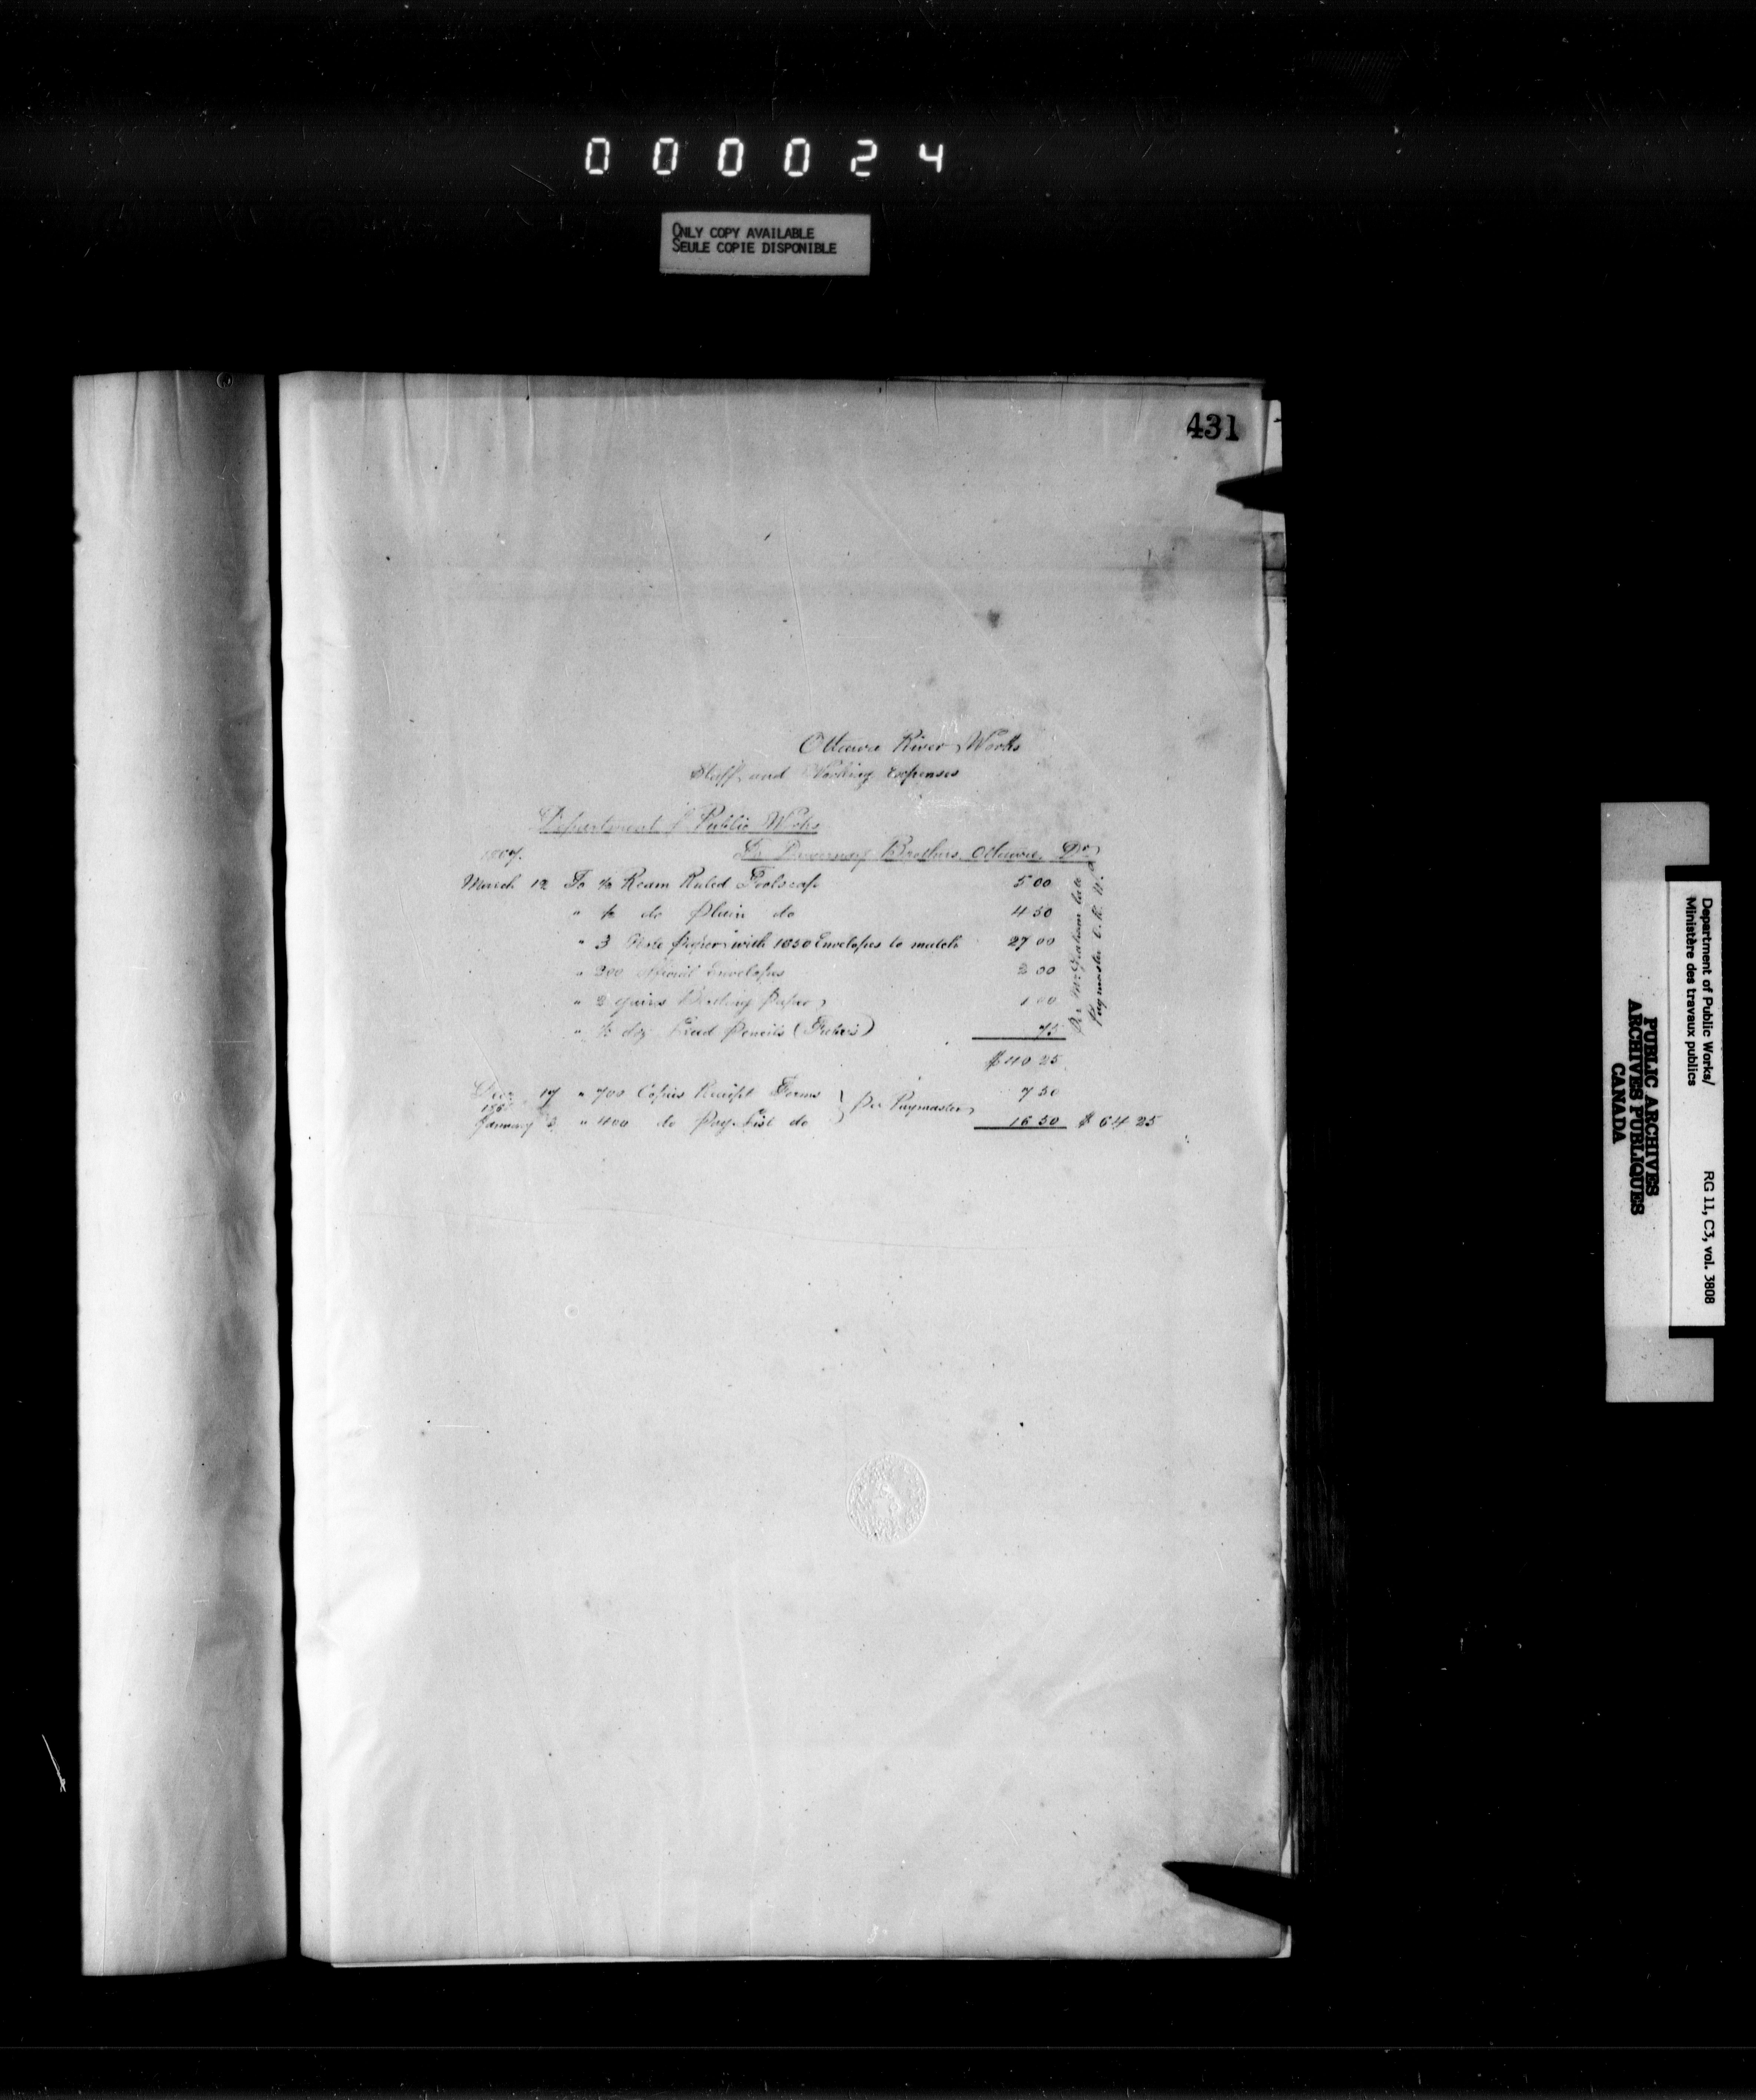 000024
ONLY COPY AVAILABLE
SEULE COPIE DISPONIBLE
431
Ottawa River Works
Staff and Working expenses
Department of Public Works
1867.
To Brothers, Ottawa, Dr
March 12 To ½ Ream Ruled Foolscap 5 00
" ½ do Plain do 4 50
" 3 Note Paper with 1050 Envelopes to match 27 00
" 200 Official Envelopes 2 00
" 2 quires Blotting Paper 1 00
" ½ doz Lead Pencils (Faber's) 75
$ 40 25
Per late
Paymaster O. R. W.
Decr 17 " 700 Copies Receipt Forms } Per Paymaster 7 50
186
January 3 " 400 do Pay List do 16 50 $ 64 25
Department of Public Works/
Ministère des travaux publics
RG 11, C3, vol. 3808
PUBLIC ARCHIVES
ARCHIVES PUBLIQUES
CANADA